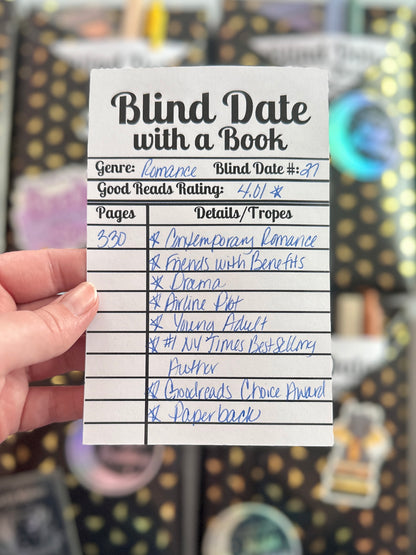 Blind Date
with a Book
Genre: Romance Blind Date #: 27
Good Reads Rating: 4.01 ☆
Pages Details/Tropes
330 ☆ Contemporary Romance
☆ Friends with Benefits
☆ Drama
☆ Airline Plot
☆ Young Adult
☆ #1 NY Times Best Selling
Author
☆ Goodreads Choice Award
☆ Paperback